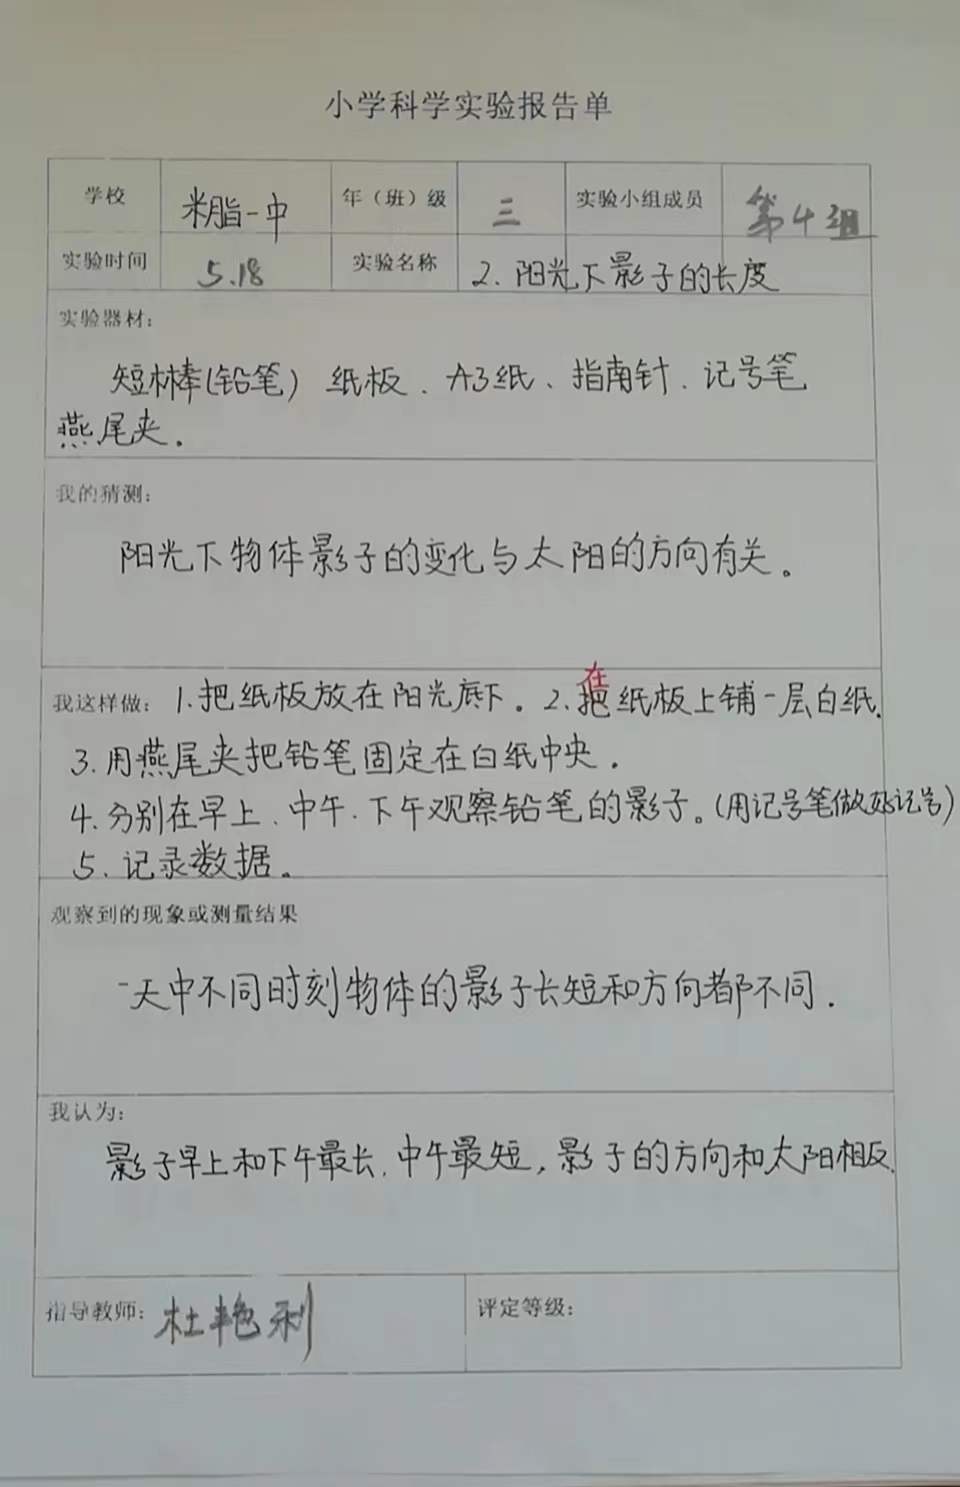 小学科学实验报告单
学校 米脂一中 年（班）级 三 实验小组成员 第4组
实验时间 5.18 实验名称 2.阳光下影子的长度
实验器材：
短木棒(铅笔) 纸板、A3纸、指南针、记号笔
燕尾夹。
我的猜测：
阳光下物体影子的变化与太阳的方向有关。
在
我这样做：1.把纸板放在阳光底下。2.把纸板上铺一层白纸.
3.用燕尾夹把铅笔固定在白纸中央.
4.分别在早上、中午.下午观察铅笔的影子。(用记号笔做好记号)
5.记录数据。
观察到的现象或测量结果
一天中不同时刻物体的影子长短和方向都不同.
我认为：
影子早上和下午最长.中午最短,影子的方向和太阳相反.
指导教师：杜艳利 评定等级：